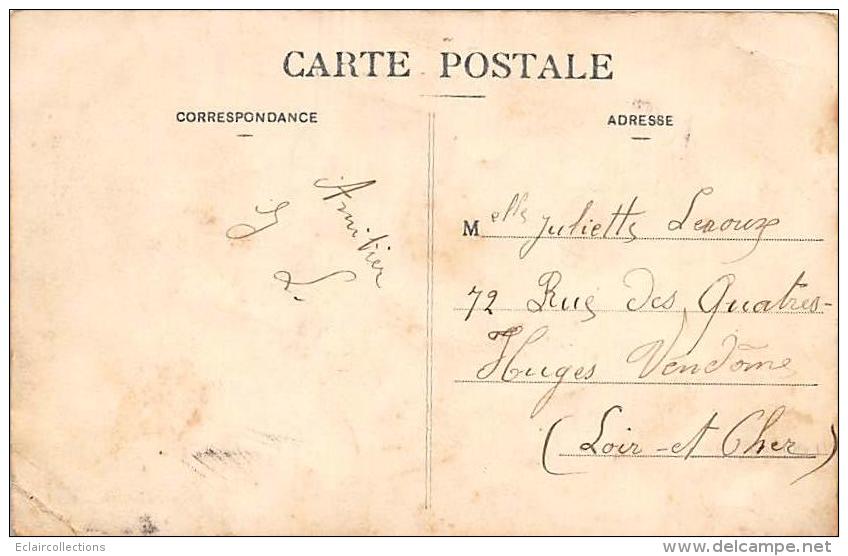 CARTE POSTALE
CORRESPONDANCE
ADRESSE
Amitier
G L.
Melle Juliette Leroux
72 Rue des Quatres-
Huges Vendôme
(Loir-et Cher)
Eclaircollections
delcampe.net